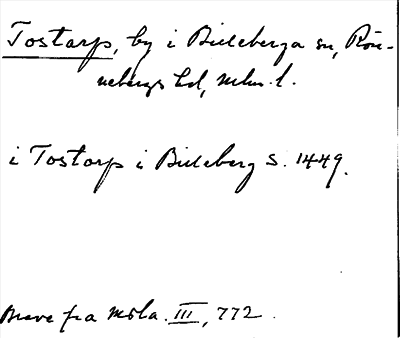 Tostarp, by i Billeberga sn, Rön-
nebergs hd, Mlm. l.
i Tostarp i Billeberg S. 1449.
Breve fra Mola. III, 772.